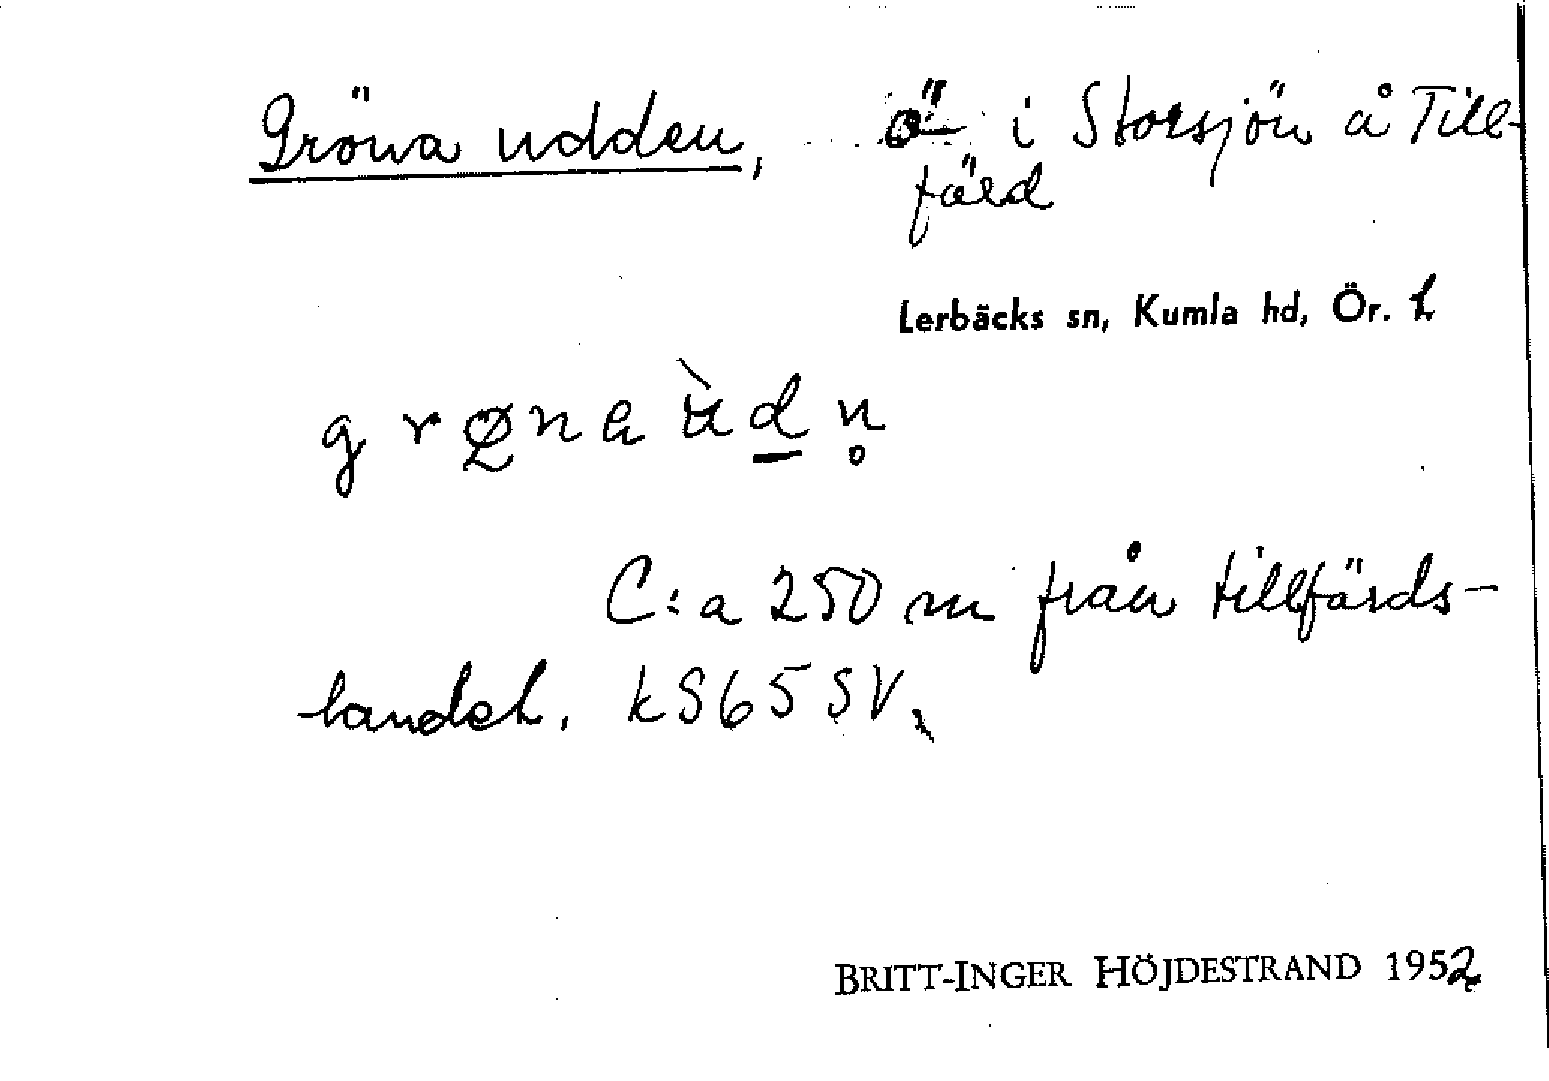 Gröna udden, ö i Storsjön å Till-
färd
Lerbäcks sn, Kumla hd, Ör. L
C:a 250 m från tillfärds-
landet. kS65SV.
BRITT-INGER HÖJDESTRAND 1952